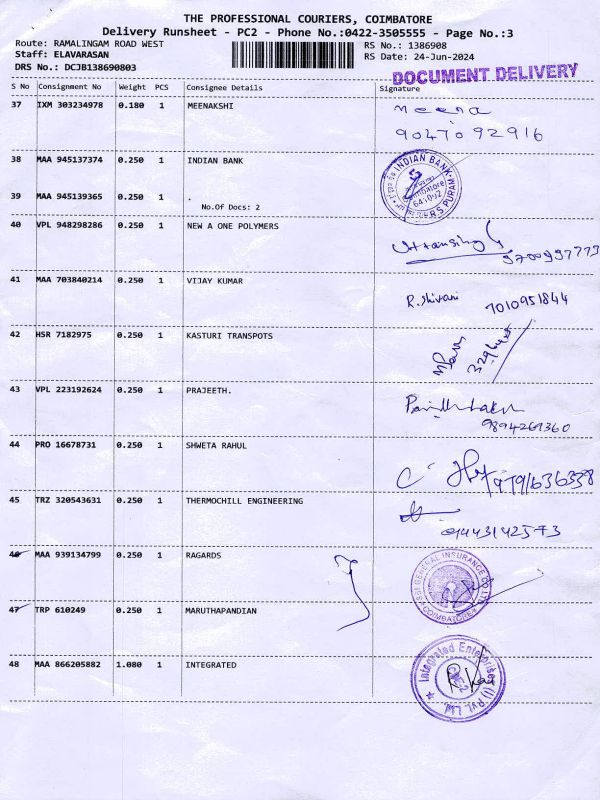 THE PROFESSIONAL COURIERS, COIMBATORE
Delivery Runsheet - PC2 - Phone No.:0422-3505555 - Page No.:3
Route: RAMALINGAM ROAD WEST RS No.: 1386908
Staff: ELAVARASAN RS Date: 24-Jun-2024
DRS No.: DCJB138690803
DOCUMENT DELIVERY
S No Consignment No Weight PCS Consignee Details Signature
37 IXM 303234978 0.180 1 MEENAKSHI Meena
9047092916
38 MAA 945137374 0.250 1 INDIAN BANK
INDIAN BANK
39 MAA 945139365 0.250 1 .
No.Of Docs: 2
40 VPL 948298286 0.250 1 NEW A ONE POLYMERS
41 MAA 703840214 0.250 1 VIJAY KUMAR R.Shivani 7010951844
42 HSR 7182975 0.250 1 KASTURI TRANSPOTS
43 VPL 223192624 0.250 1 PRAJEETH.
9894261360
44 PRO 16678731 0.250 1 SHWETA RAHUL
9791636338
45 TRZ 320543631 0.250 1 THERMOCHILL ENGINEERING
9443142573
46 MAA 939134799 0.250 1 RAGARDS
GENERAL INSURANCE CO
COIMBATORE
47 TRP 610249 0.250 1 MARUTHAPANDIAN
48 MAA 866205882 1.080 1 INTEGRATED
Integrated Enterprises (I) Pvt. Ltd.